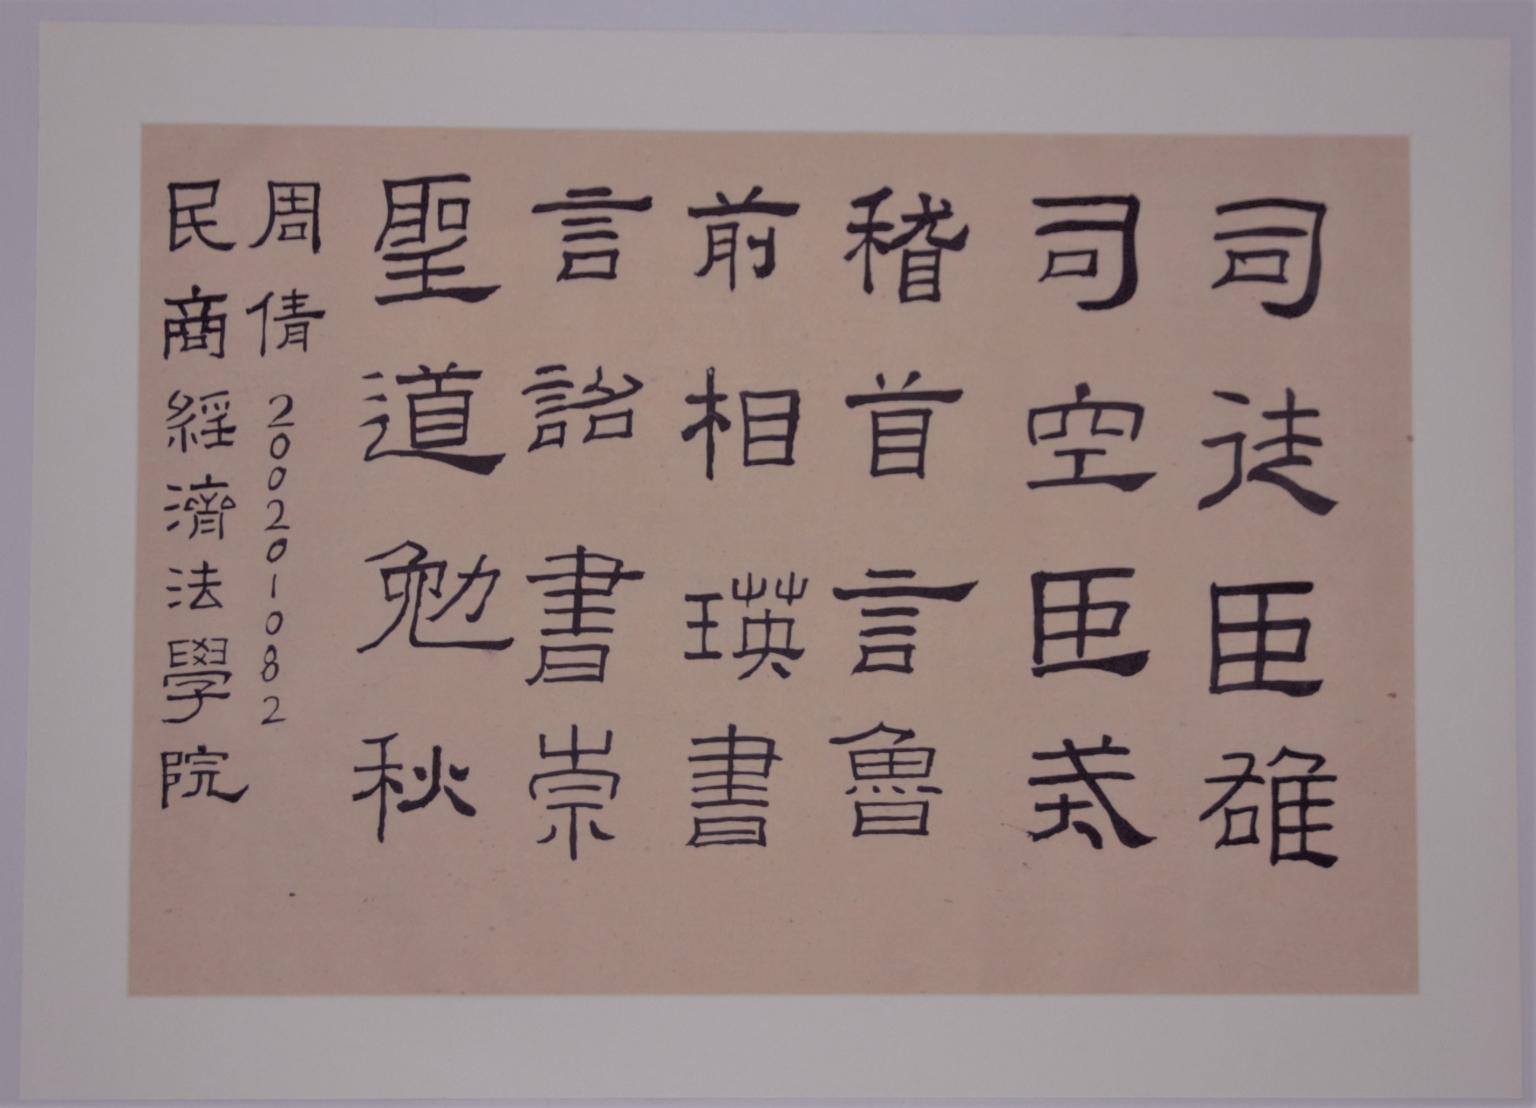 司徒臣雄
司空臣戒
稽首言魯
前相瑛書
言詔書崇
聖道勉秋
周倩 200201082
民商經濟法學院